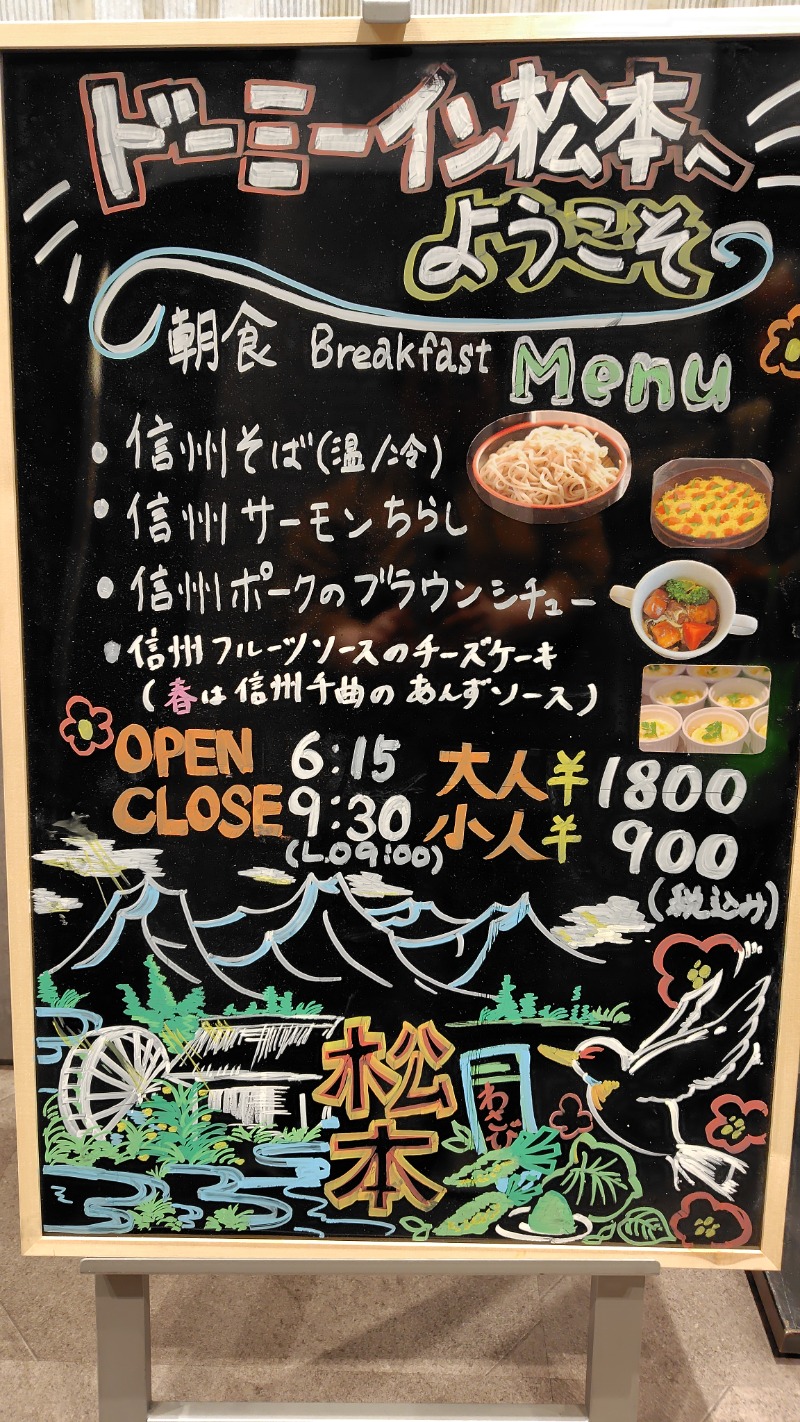 ドーミーイン松本へ
ようこそ
朝食 Breakfast Menu
・信州そば(温/冷)
・信州サーモンちらし
・信州ポークのブラウンシチュー
・信州フルーツソースのチーズケーキ
(春は信州千曲のあんずソース)
OPEN 6:15 大人¥1800
CLOSE 9:30 小人¥900
(L.O 9:00)
(税込み)
松本
わさび